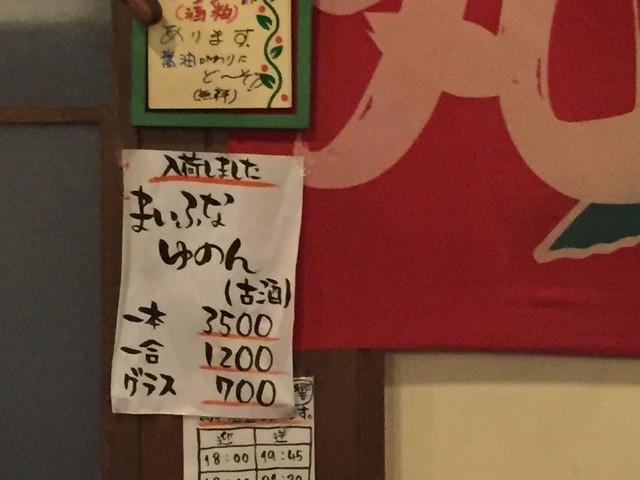 (酒粕)
あります
醤油代わりに
ど〜ぞ
(無料)
入荷しました
まいふな
ゆのん
(古酒)
一本 3500
一合 1200
グラス 700
迎 送
18:00 19:45